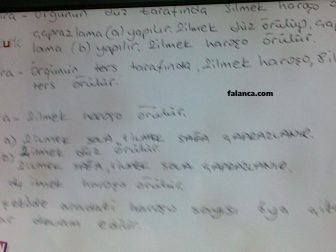 ra - örgünün düz tarafında ilmek haroşo
çaprazlama (a) yapılır. ilmek düz örülüp,
lama (b) yapılır. ilmek haroşo örülür.
ra - örgünün ters tarafında, ilmek haroşo,
ters örülür.
falanca.com
a - ilmek haroşo örülür.
a) ilmek sola, ilmek sağa çaprazlanır.
ilmek düz örülür.
ilmek sağa, ilmek sola çaprazlanır.
ilmek haroşo örülür.
şekilde aradaki haroşo sayısı
devam edilir.